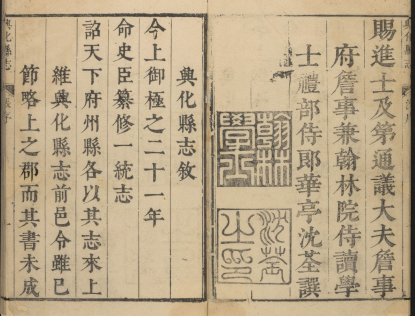 賜進士及第通議大夫詹事
府詹事兼翰林院侍讀學
士禮部侍郎華亭沈荃譔
翰林學士
沈荃之印
興化縣志敘
今上御極之二十一年
命史臣纂修一統志
詔天下府州縣各以其志來上
維興化縣志前邑令雖已
節略上之郡而其書未成